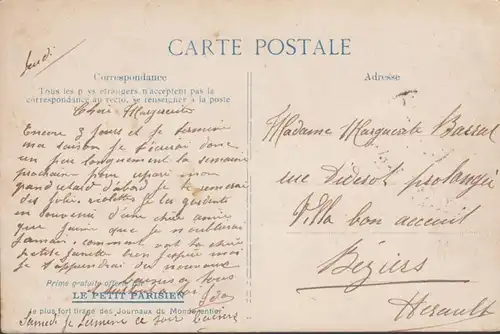 Jeudi
CARTE POSTALE
Correspondance
Tous les pays étrangers n'acceptent pas la
correspondance au recto, se renseigner à la poste
Chère Marguerite
Encore 3 jours et je termine
ma saison je t'écrirai donc
un peu longuement la semaine
prochaine pour réparer mon
grand retard d'abord je te remercie
des jolies violettes je les garderai
en souvenir d'une chère amie
que j'aime que je n'oublierai
jamais. comment va ta chère
petite
des nouvelles
à tous
Prime gratuite offerte
LE PETIT PARISIEN
le plus fort tirage des Journaux du Monde entier
Samedi je termine ce soir
Adresse
Madame Marguerite Bassal
rue Diderot prolongée
Villa bon accueil
Béziers
Herault